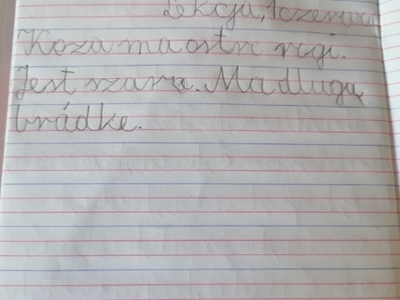 Lekcja, 1 czerwca
Koza ma ostre rogi.
Jest szara. Ma długą
brádkę.